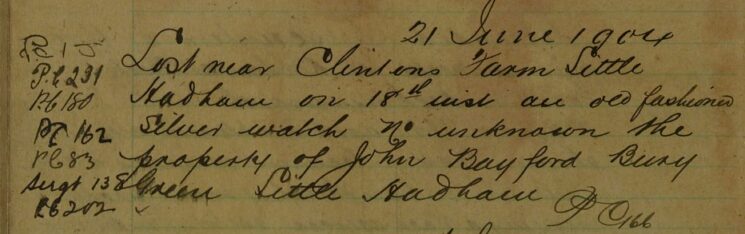 21 June 1904
P.C 231 Lost near Clintons Farm Little
PC 180 Hadham on 18th inst an old fashioned
PC 162 Silver watch No unknown the
PC 83 property of John Bayford Bury
Sergt 138 Green Little Hadham
PC 202 PC 166